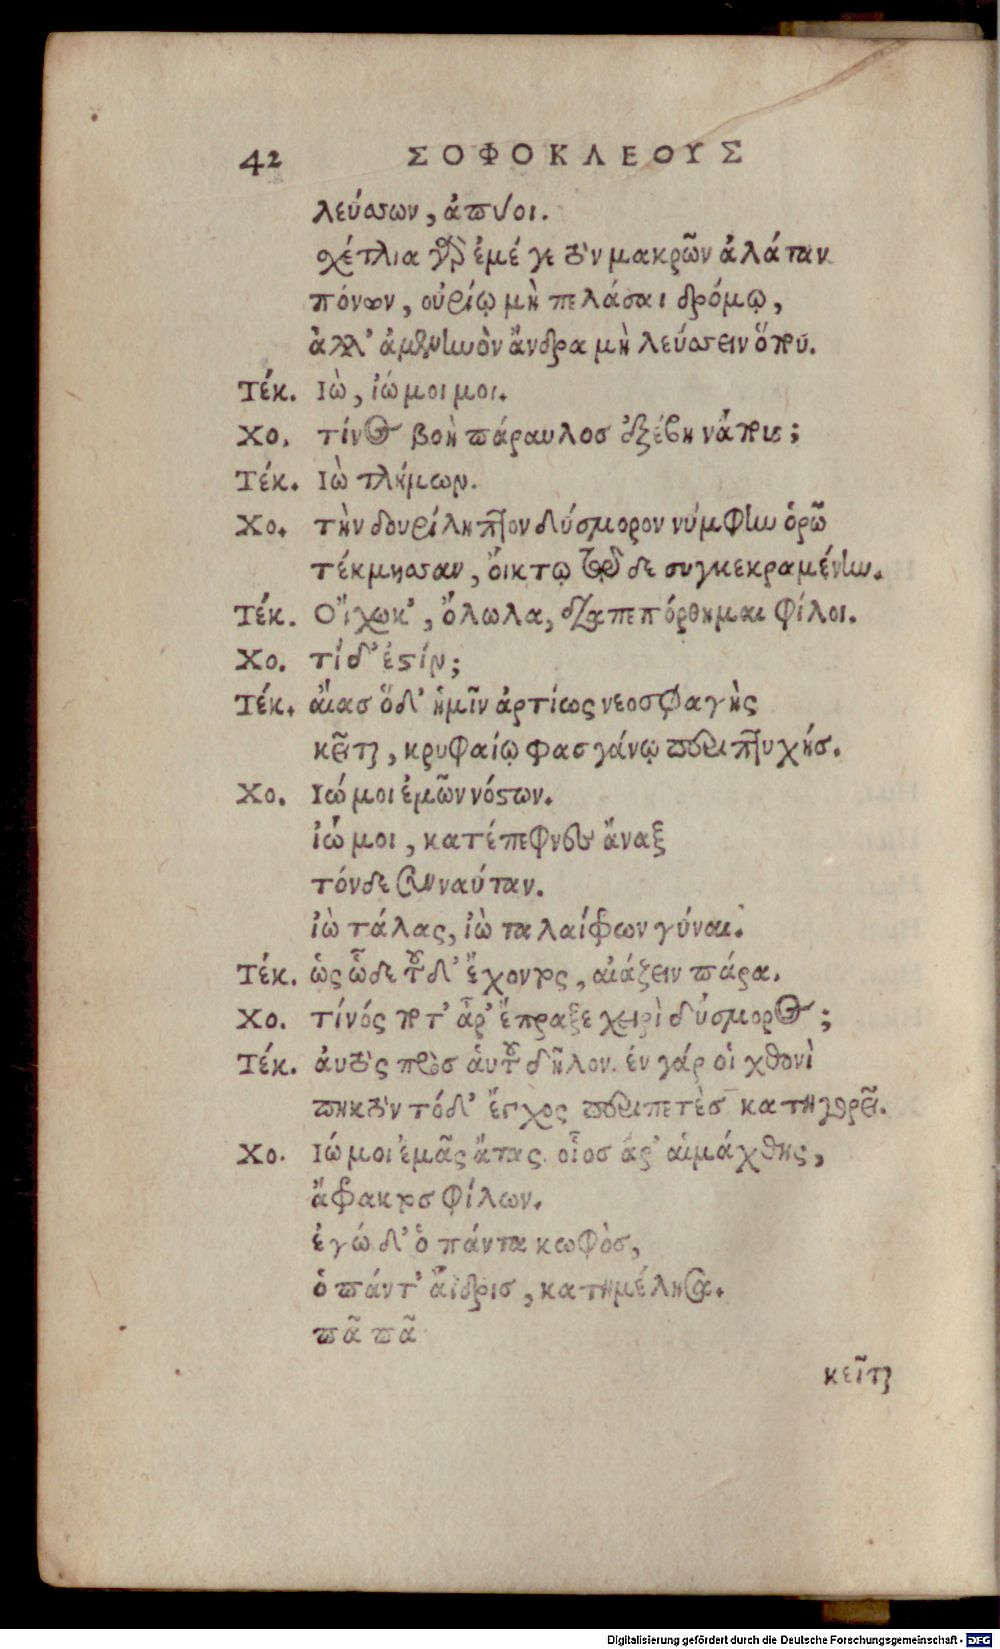 42 ΣΟΦΟΚΛΕΟΥΣ
λεύσσων, ἀπύοι.
σχέτλια γὰρ ἐμέ γε τὸν μακρῶν ἀλάταν
πόνων, οὐρίῳ μὴ πελάσαι δρόμῳ,
ἀλλ' ἀμενηνὸν ἄνδρα μὴ λεύσσειν ὅπου.
Τέκ. Ιὼ, ἰώ μοι μοι.
Χο. τίνος βοὴ πάραυλοσ ἐξέβη νάπους;
Τέκ. Ιὼ τλήμων.
Χο. τὴν δουρίληπτον δύσμορον νύμφην ὁρῶ
τέκμησσαν, οἴκτῳ τῷδε συγκεκραμένην.
Τέκ. Οἴχωκ', ὄλωλα, διαπεπόρθημαι φίλοι.
Χο. τί δ' ἐστίν;
Τέκ. αἴασ ὅδ' ἡμῖν ἀρτίως νεοσφαγὴς
κεῖται, κρυφαίῳ φασγάνῳ περιπτυχήσ.
Χο. Ιώ μοι ἐμῶν νόστων.
ἰώ μοι, κατέπεφνες ἄναξ
τόνδε συνναύταν.
ἰὼ τάλας, ἰὼ ταλαίφρων γύναι.
Τέκ. ὡς ὧδε τοῦδ' ἔχοντος, αἰάζειν πάρα.
Χο. τίνός ποτ' ἆρ' ἔπραξε χειρὶ δύσμορος;
Τέκ. αὐτὸς πρὸσ αὑτοῦ δῆλον. ἐν γάρ οἱ χθονὶ
πηκτὸν τόδ' ἔγχος περιπετὲσ κατηγορεῖ.
Χο. Ιώ μοι ἐμᾶς ἄτας. οἷοσ ἄρ' αἱμάχθης,
ἄφρακτοσ φίλων.
ἐγώ δ' ὁ πάντα κωφὸσ,
ὁ πάντ' ἄϊδρισ, κατημέλησα.
πᾶ πᾶ
κεῖται
Digitalisierung gefördert durch die Deutsche Forschungsgemeinschaft - DFG